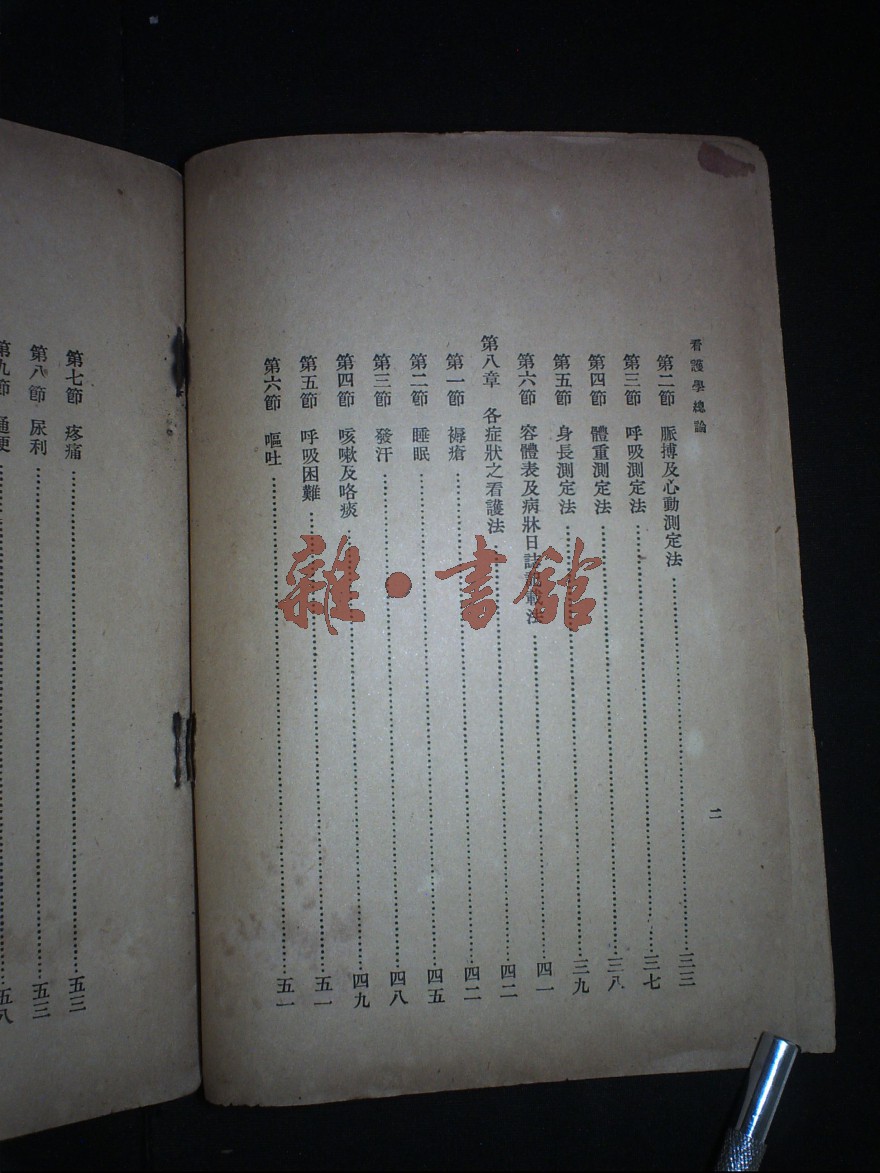 看護學總論
二
第二節 脈搏及心動測定法 三三
第三節 呼吸測定法 三七
第四節 體重測定法 三八
第五節 身長測定法 三九
第六節 容體表及病牀日誌記載法 四一
第八章 各症狀之看護法 四二
第一節 褥瘡 四二
第二節 睡眠 四五
第三節 發汗 四八
第四節 咳嗽及咯痰 四九
第五節 呼吸困難 五一
第六節 嘔吐 五一
第七節 疼痛 五三
第八節 尿利 五三
第九節 通便 五八
雜·書館